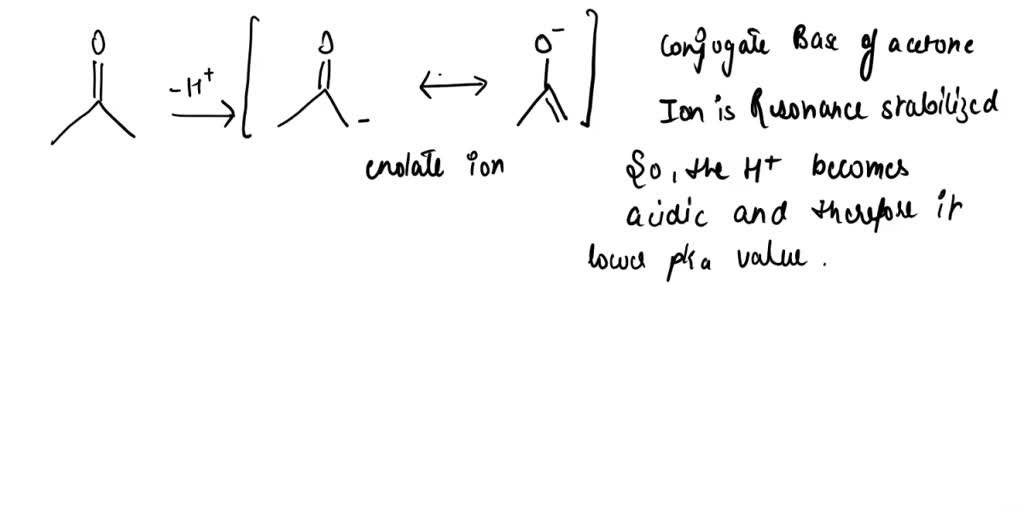 O
-H⁺
O
-
O⁻
enolate ion
Conjugate Base of acetone
Ion is Resonance stabilized
So, the H⁺ becomes
acidic and therefore it
lower pka value.